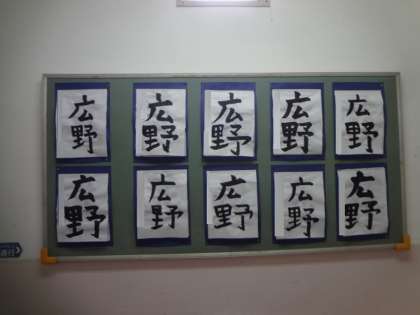 広野
広野
広野
広野
広野
広野
広野
広野
広野
広野